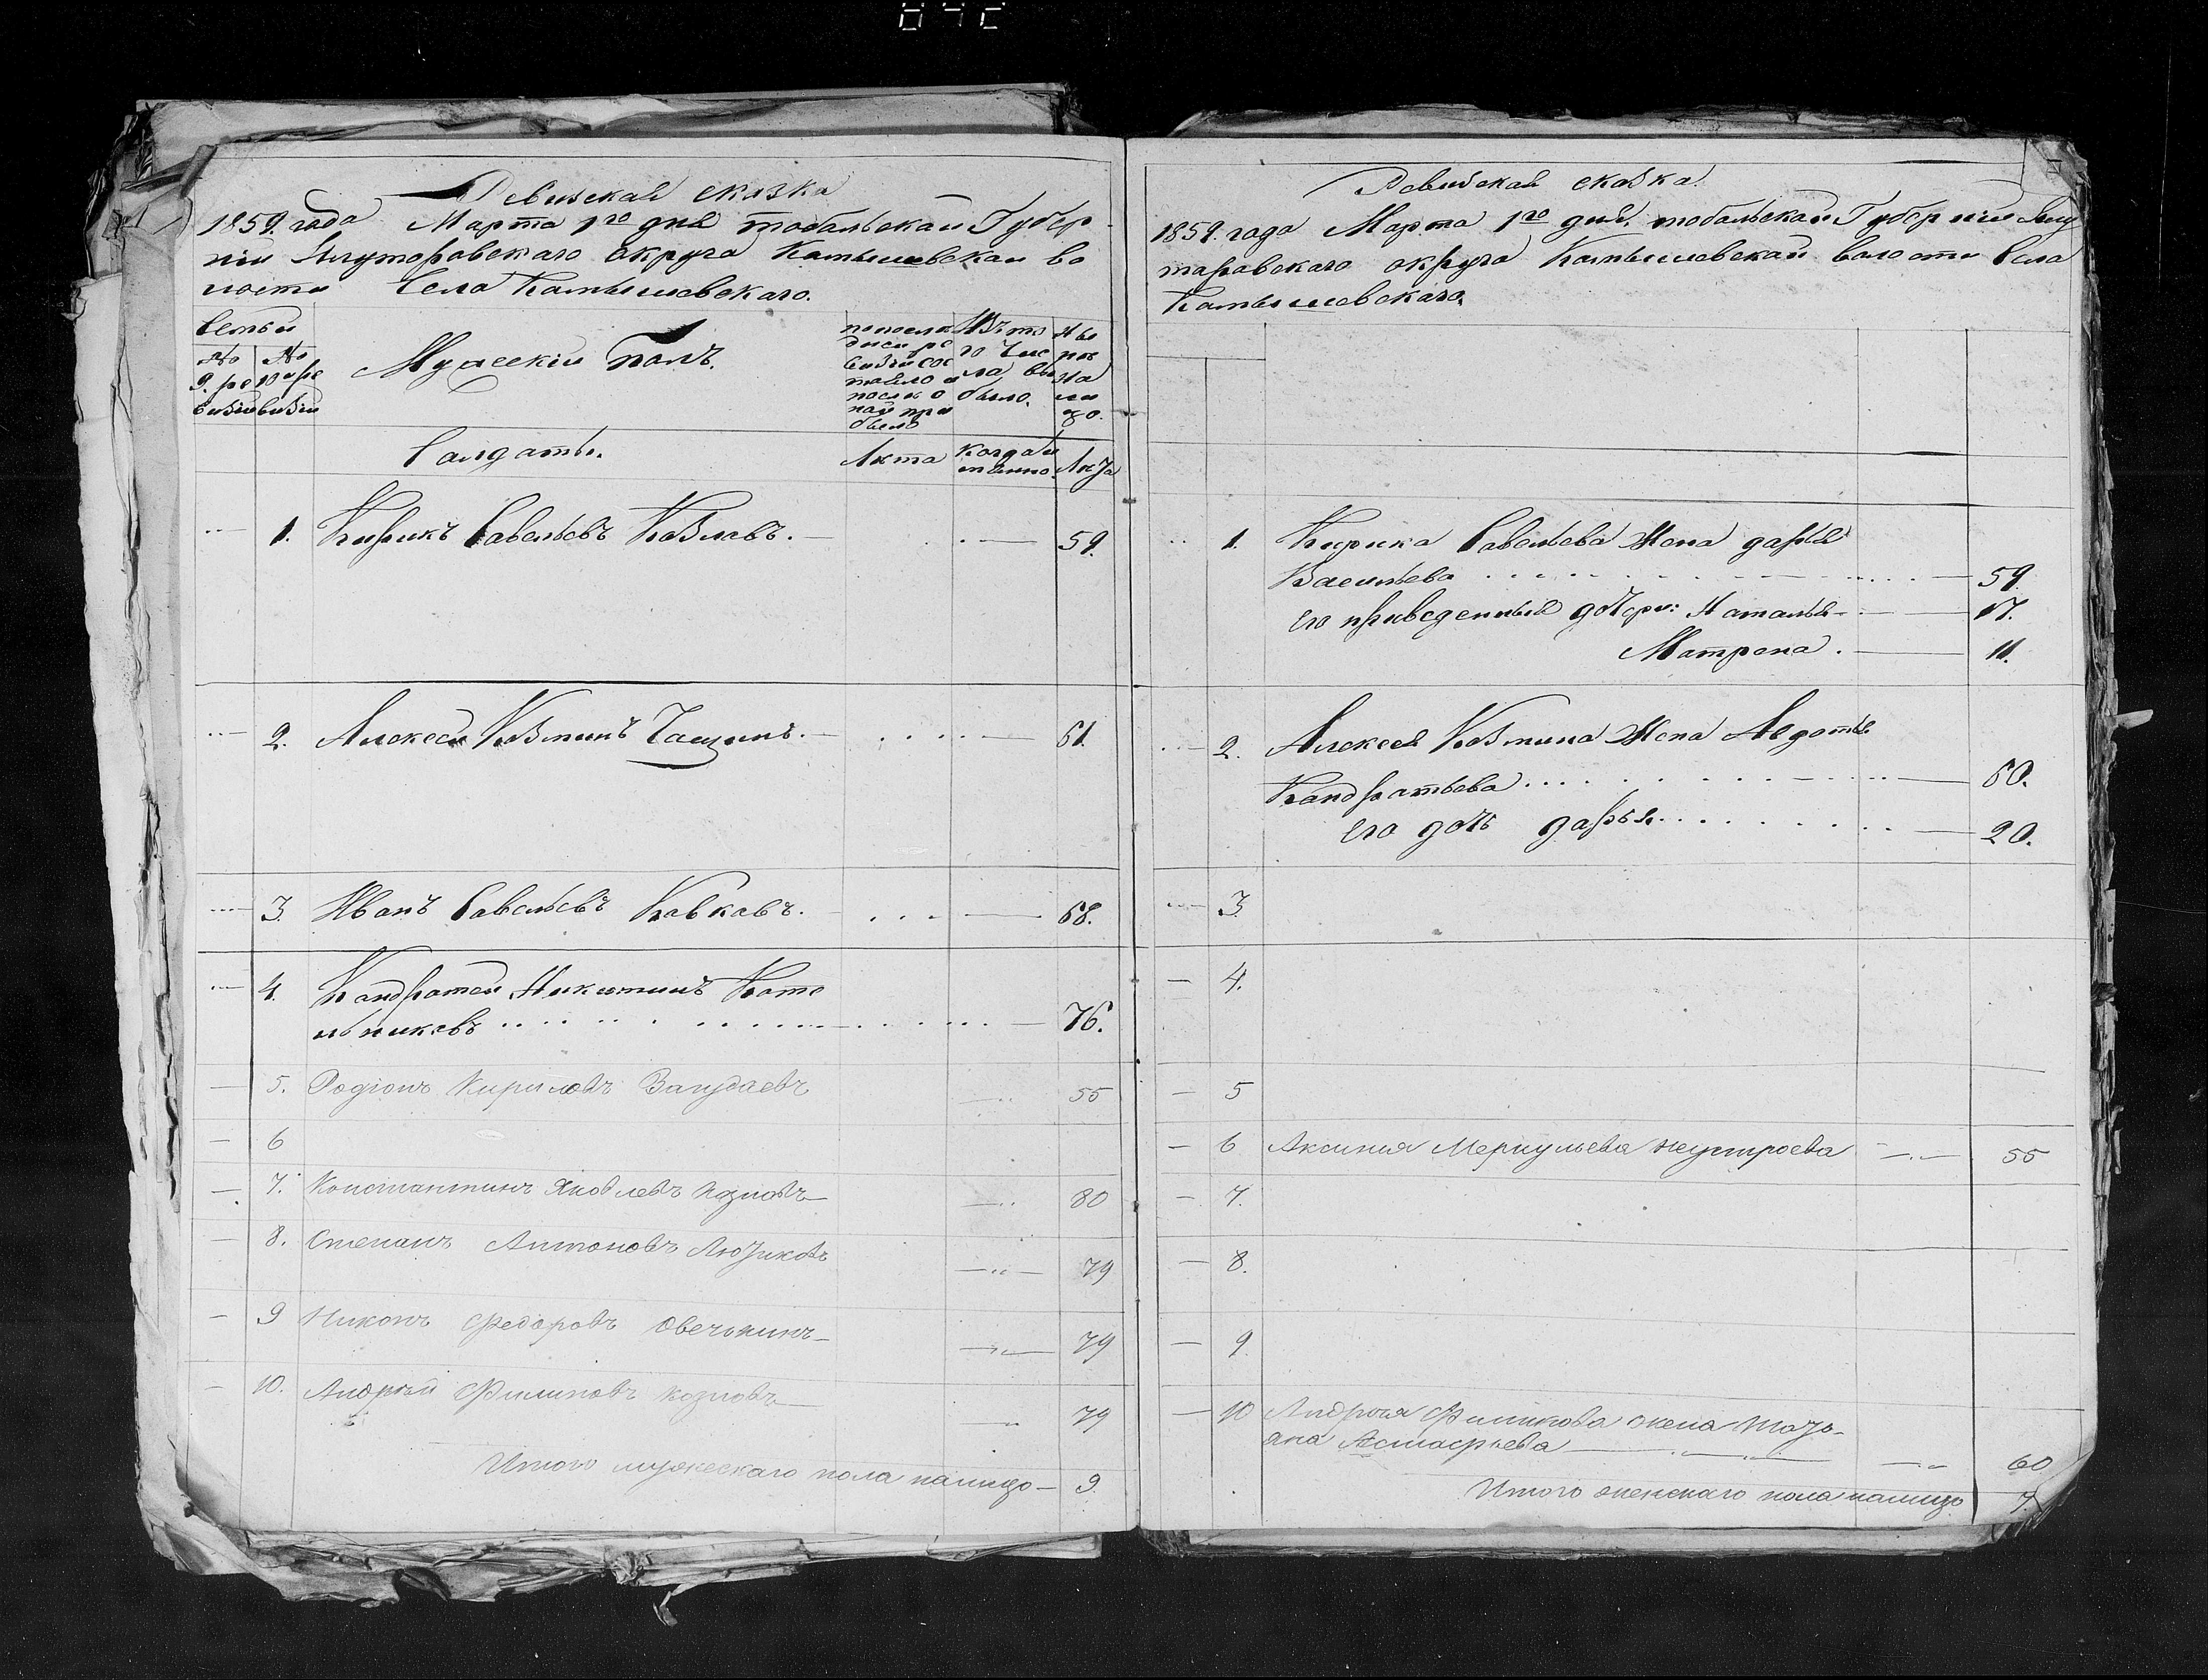 Ревизская сказка
1859. года Марта 1го дня тобольскай Губер
нии Ялуторовскаго округа Камышевскай во
лости Села Камышевскаго.
Семьи
№ 9. ревизии
№ 10й ревизии
Мужескiй Полъ.
Изъ то го числа выбыло.
Ны не на лицо.
Салдаты.
Лѣта
когда и
Лѣта
1. Кирикъ Савельевъ Козлавъ. 59.
2. Алексей Козминъ Тащинъ. 61.
3 Иванъ Савельевъ Ковкавъ. 68.
4. Кандратей Никитинъ Коте
льниковъ 76.
5. Родіонъ Кириловъ 55
6
7. Константинъ Яковлевъ Козловъ 80
8. Степанъ Антоновъ 79
9 Никонъ Федоровъ Овечкинъ 79
10. Андрей Филиповъ Козловъ 79
Итого мужескаго пола налицо 9.
Ревизская сказка.
1859. года Марта 1го дня. тобольскай Губернии Ялу
таровскаго округа Камышевскай волости Села
Камышевскаго.
1. Кирика Савельева Жена дарья
Васильева 59
Его приведенныя дочери: Наталья 17.
Матрена. 11.
2. Алексея Козмина Жена Авдотья
Кандратьева 60.
Его дочь дарья 20.
3.
4.
5
6 Аксинья Меркульева Неустроева 55
7.
8.
9.
10 Андрея Филипова жена Тать-
яна Астафьева 60
Итого женскаго пола налицо 7.